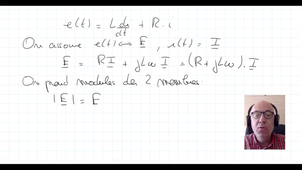 e(t) = L di/dt + R.i
On assume e(t) ⇔ E̲, i(t) = I̲
E̲ = R I̲ + jLω I̲ = (R + jLω). I̲
On prend modules des 2 membres
|E̲| = E